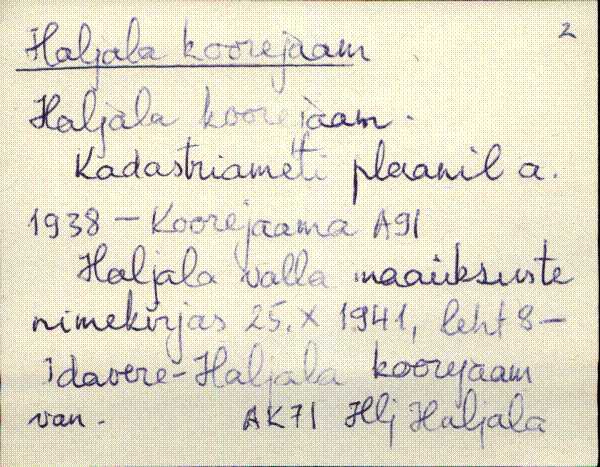 2
Haljala koorejaam
Haljala koorejaam.
Kadastriameti plaanil a.
1938 – Koorejaama A91
Haljala valla maaüksuste
nimekirjas 25.X 1941, leht 8 –
Idavere-Haljala koorejaam
van. AK71 Hlj Haljala